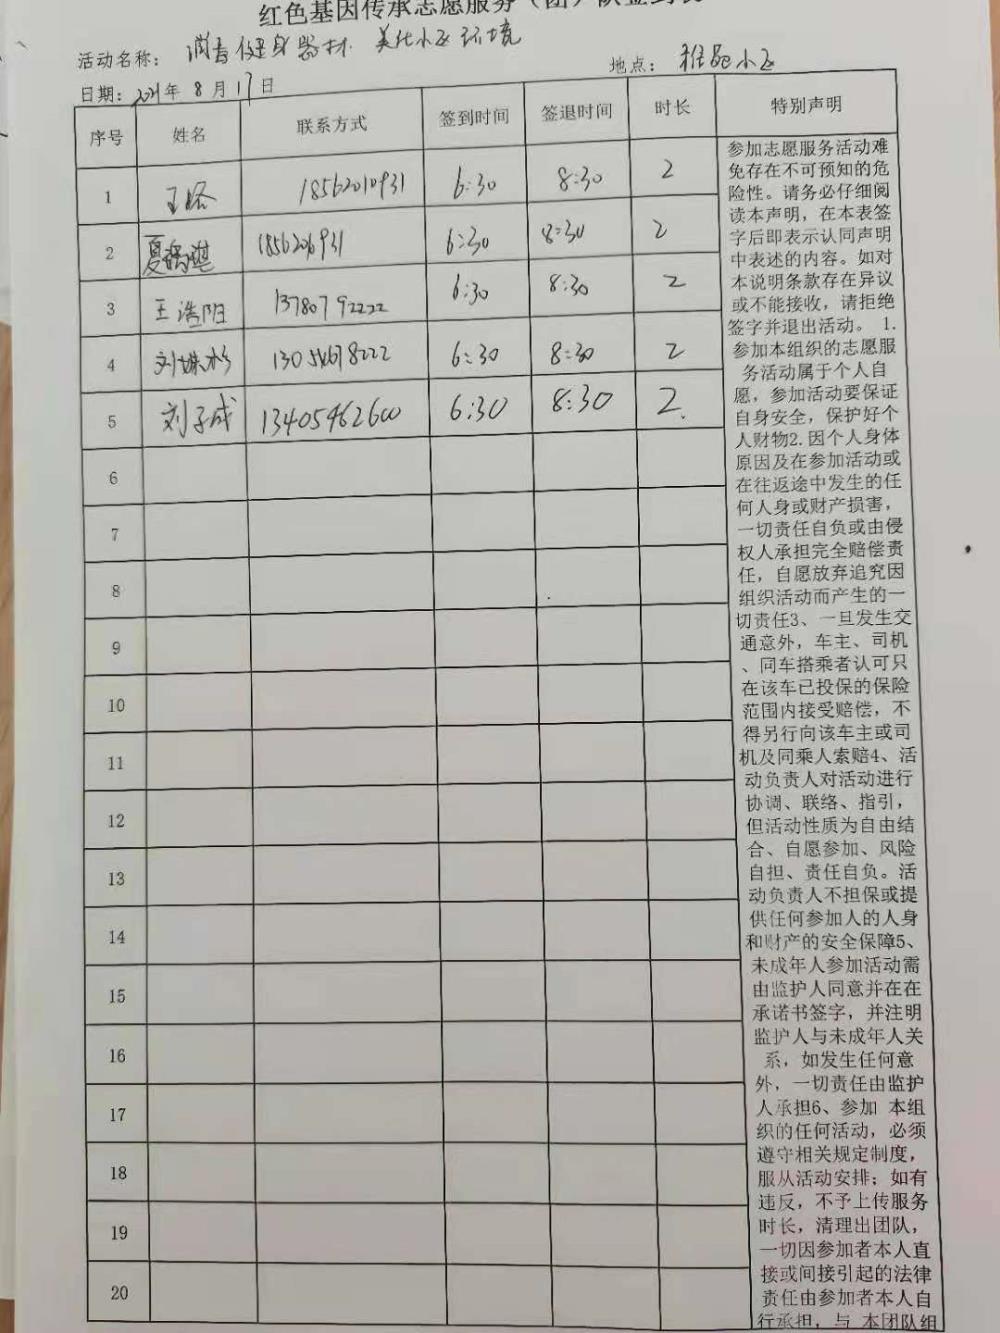 红色基因传承志愿服务(团)队签到表
活动名称: 消毒健身器材 美化小区环境
地点: 小区
日期: 2021年 8 月 17日
序号 姓名 联系方式 签到时间 签退时间 时长 特别声明
1 18562010931 6:30 8:30 2
2 夏 1856206931 6:30 8:30 2
3 王浩阳 13780792222 6:30 8:30 2
4 刘姝杉 13054678222 6:30 8:30 2
5 刘子成 13405462600 6:30 8:30 2.
6
7
8
9
10
11
12
13
14
15
16
17
18
19
20
参加志愿服务活动难
免存在不可预知的危
险性。请务必仔细阅
读本声明,在本表签
字后即表示认同声明
中表述的内容。如对
本说明条款存在异议
或不能接收,请拒绝
签字并退出活动。 1.
参加本组织的志愿服
务活动属于个人自
愿,参加活动要保证
自身安全,保护好个
人财物2.因个人身体
原因及在参加活动或
在往返途中发生的任
何人身或财产损害,
一切责任自负或由侵
权人承担完全赔偿责
任,自愿放弃追究因
组织活动而产生的一
切责任3、一旦发生交
通意外,车主、司机
、同车搭乘者认可只
在该车已投保的保险
范围内接受赔偿,不
得另行向该车主或司
机及同乘人索赔4、活
动负责人对活动进行
协调、联络、指引,
但活动性质为自由结
合、自愿参加、风险
自担、责任自负。活
动负责人不担保或提
供任何参加人的人身
和财产的安全保障5、
未成年人参加活动需
由监护人同意并在在
承诺书签字,并注明
监护人与未成年人关
系,如发生任何意
外,一切责任由监护
人承担6、参加 本组
织的任何活动,必须
遵守相关规定制度,
服从活动安排;如有
违反,不予上传服务
时长,清理出团队,
一切因参加者本人直
接或间接引起的法律
责任由参加者本人自
行承担,与 本团队组